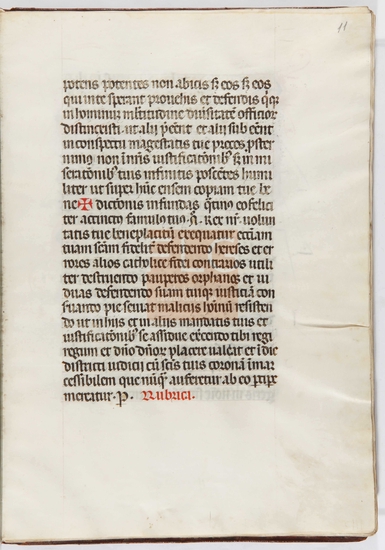 11
potens potentes non abicis sʒ eos sʒ eos
qui in te sperant provehis et defendis q̄z
in hominum multitudine diversitatē officiorū
distinxisti ut alij p̄eēnt et alij sub eēnt
in conspectu magestatis tue preces p̄ster
nimus non in n̄ris iustificatōnibꝰ sʒ in mi
seratōnibꝰ tuis infinitas poscētes humi
liter ut super hūc ensem copiam tue be
ne✠dictōnis infundas q̄tinꝰ eo felici
ter accincto famulo tuo N Rex nr̄ volun
tatis tue beneplacitū exequatur ecc̄iam
tuam sc̄am fidelit̄ defendendo hereses et er
rores alios catholice fidei contrarios utili
ter destruendo pauperes orphanos et vi
duas defendendo suam tuiqz iusticiā con
seruando pie seruit malicijs hoīnū resisten
do ut in hijs et in alijs mandatis tuis et
iustificatōnibꝰ se assidue exercendo tibi regi
regum et dn̄o dn̄or placere valeat et ī die
districti iudicij cū sc̄is tuis coronā īmar
cessibilem que nūq̄ auferetur ab eo p̄cipe
mereatur. P. Rubrica.